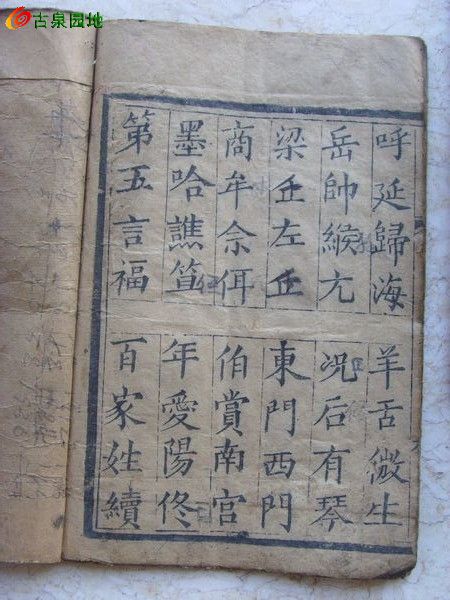 古泉园地
呼延歸海羊舌微生
岳帥緱亢况后有琴
梁丘左丘東門西門
商牟佘佴伯賞南宫
墨哈譙笪年愛陽佟
第五言福百家姓續